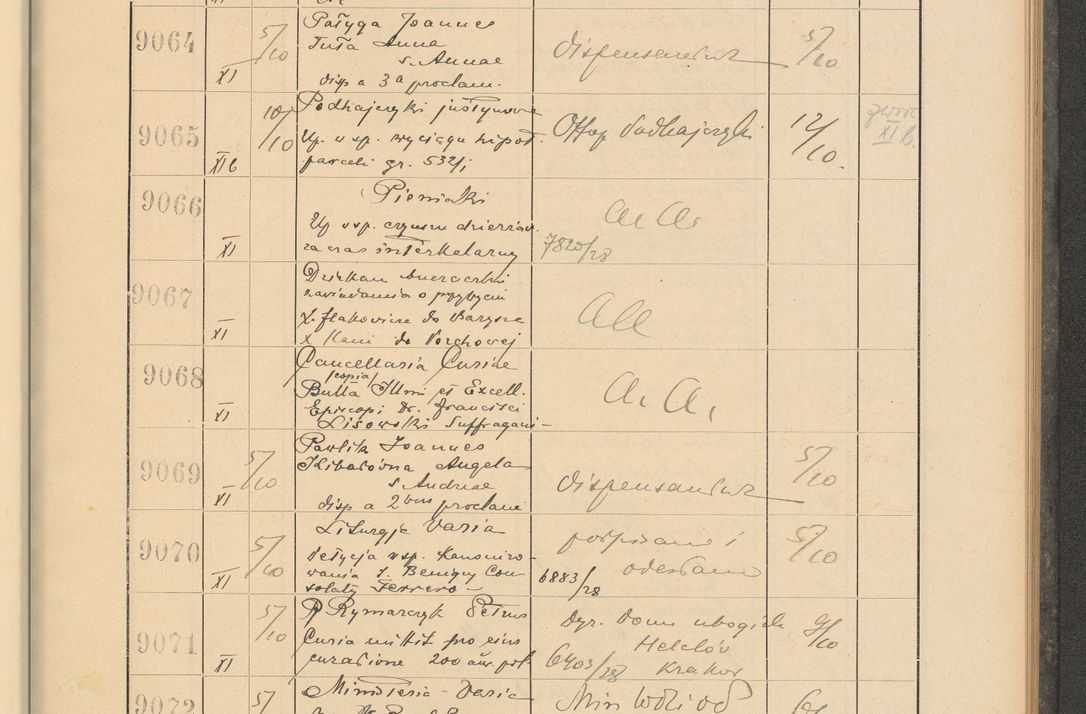 9064
5/10
XI
Pałyga Joannes
Tuła Anna
s. Annae
disp a 3ª proclam.
dispensantur
5/10
9065
10/10
XI b
Podhajczyki Justynowe
Up. w sp. wyciągu hipot.
parceli gr. 532/1
Ostap Podhajczyki
12/10.
XI b.
9066
XI
Pieniaki
Up wsp. czynszu dzierżaw.
za czas interkalarny
a. a.
7820/28
9067
XI
Dziekan
zawiadamia o przybyciu
X. do Barysza
X do Porchowej
aa
9068
XI
Cancellaria Curiae
(copia)
Bulla Illmi et Excell.
Episcopi Dr. Francisci
Lisowski Suffragani-
a. a.
9069
5/10
XI
Pawlik Joannes
Angela
s. Andreae
disp a 2bus proclam
dispensantur
5/10
9070
5/10
XI
Liturgje Varia
Petycja wsp. Kanonizo-
wania s. Benigny Con-
solaty Ferrero -
podpisano i
odesłano
6883/28
5/10
9071
5/10
XI
P Rymarczyk Petrus
Curia mittit pro eius
curatione 200 aur. pol
Dyr. Domu ubogich
Helclów
Kraków
6403/28
9/10
9072
5/
Ministeria - Varia
Min WR i OP